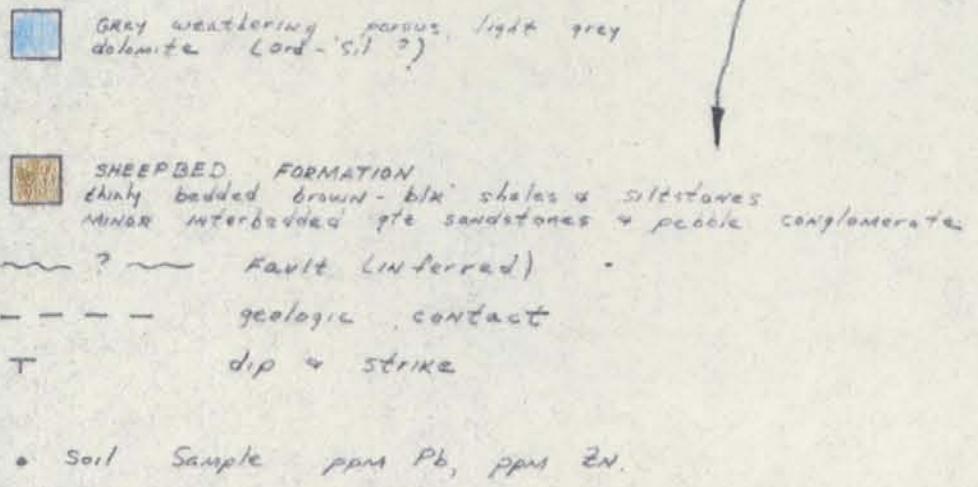 GRAY weathering porous, light grey
dolomite (Ord-Sil ?)
SHEEPBED FORMATION
thinly bedded brown-blk shales & siltstones
MINOR interbedded qtz sandstones & pebble conglomerate
? Fault (inferred)
geologic contact
dip & strike
Soil Sample ppm Pb, ppm ZN.